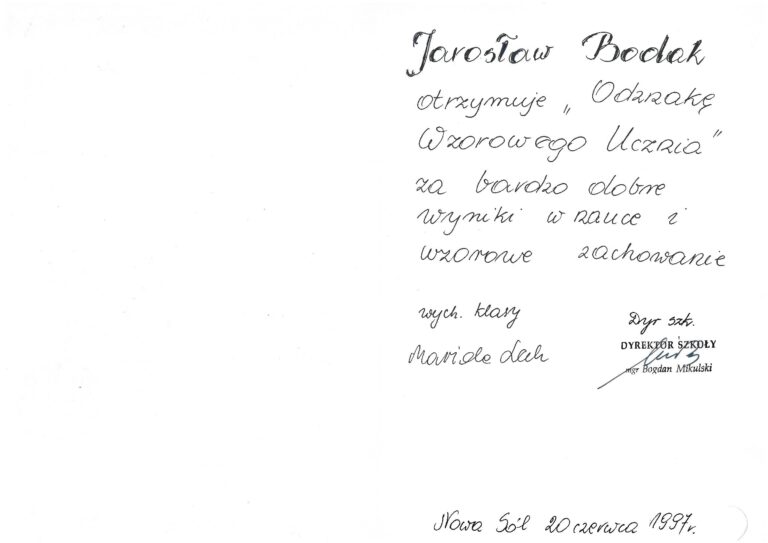 Jarosław Bodak
otrzymuje „Odznakę
Wzorowego Ucznia"
za bardzo dobre
wyniki w nauce i
wzorowe zachowanie
wych. klasy
Mariola Lech
Dyr szk.
DYREKTOR SZKOŁY
mgr Bogdan Mikulski
Nowa Sól 20 czerwca 1997r.